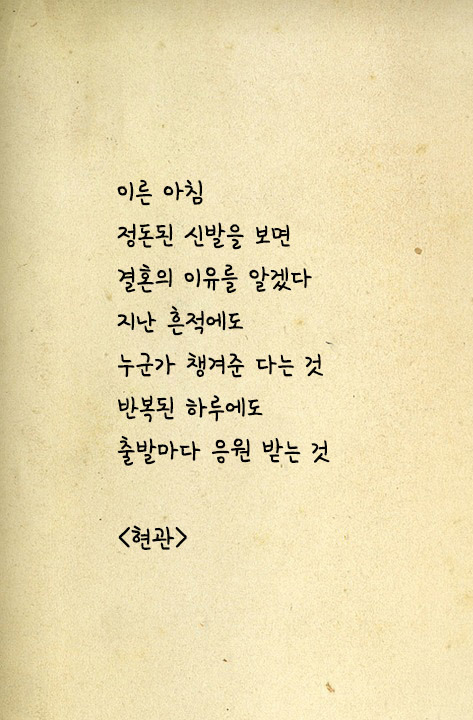 이른 아침
정돈된 신발을 보면
결혼의 이유를 알겠다
지난 흔적에도
누군가 챙겨준 다는 것
반복된 하루에도
출발마다 응원 받는 것
<현관>